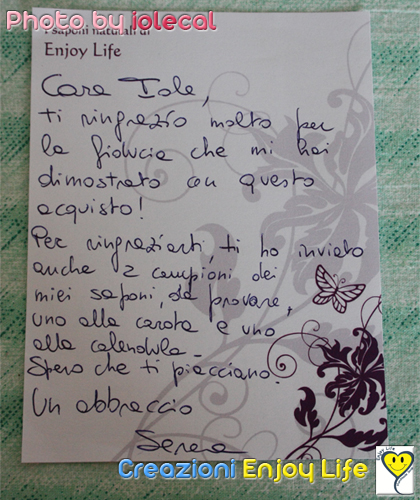 Photo by iolecal
I saponi naturali di
Enjoy Life
Cara Iole,
ti ringrazio molto per
la fiducia che mi hai
dimostrato con questo
acquisto!
Per ringraziarti, ti ho inviato
anche 2 campioni dei
miei saponi, da provare,
uno alla carota e uno
alla calendula.
Spero che ti piacciano.
Un abbraccio
Serena
Creazioni Enjoy Life
Enjoy Life